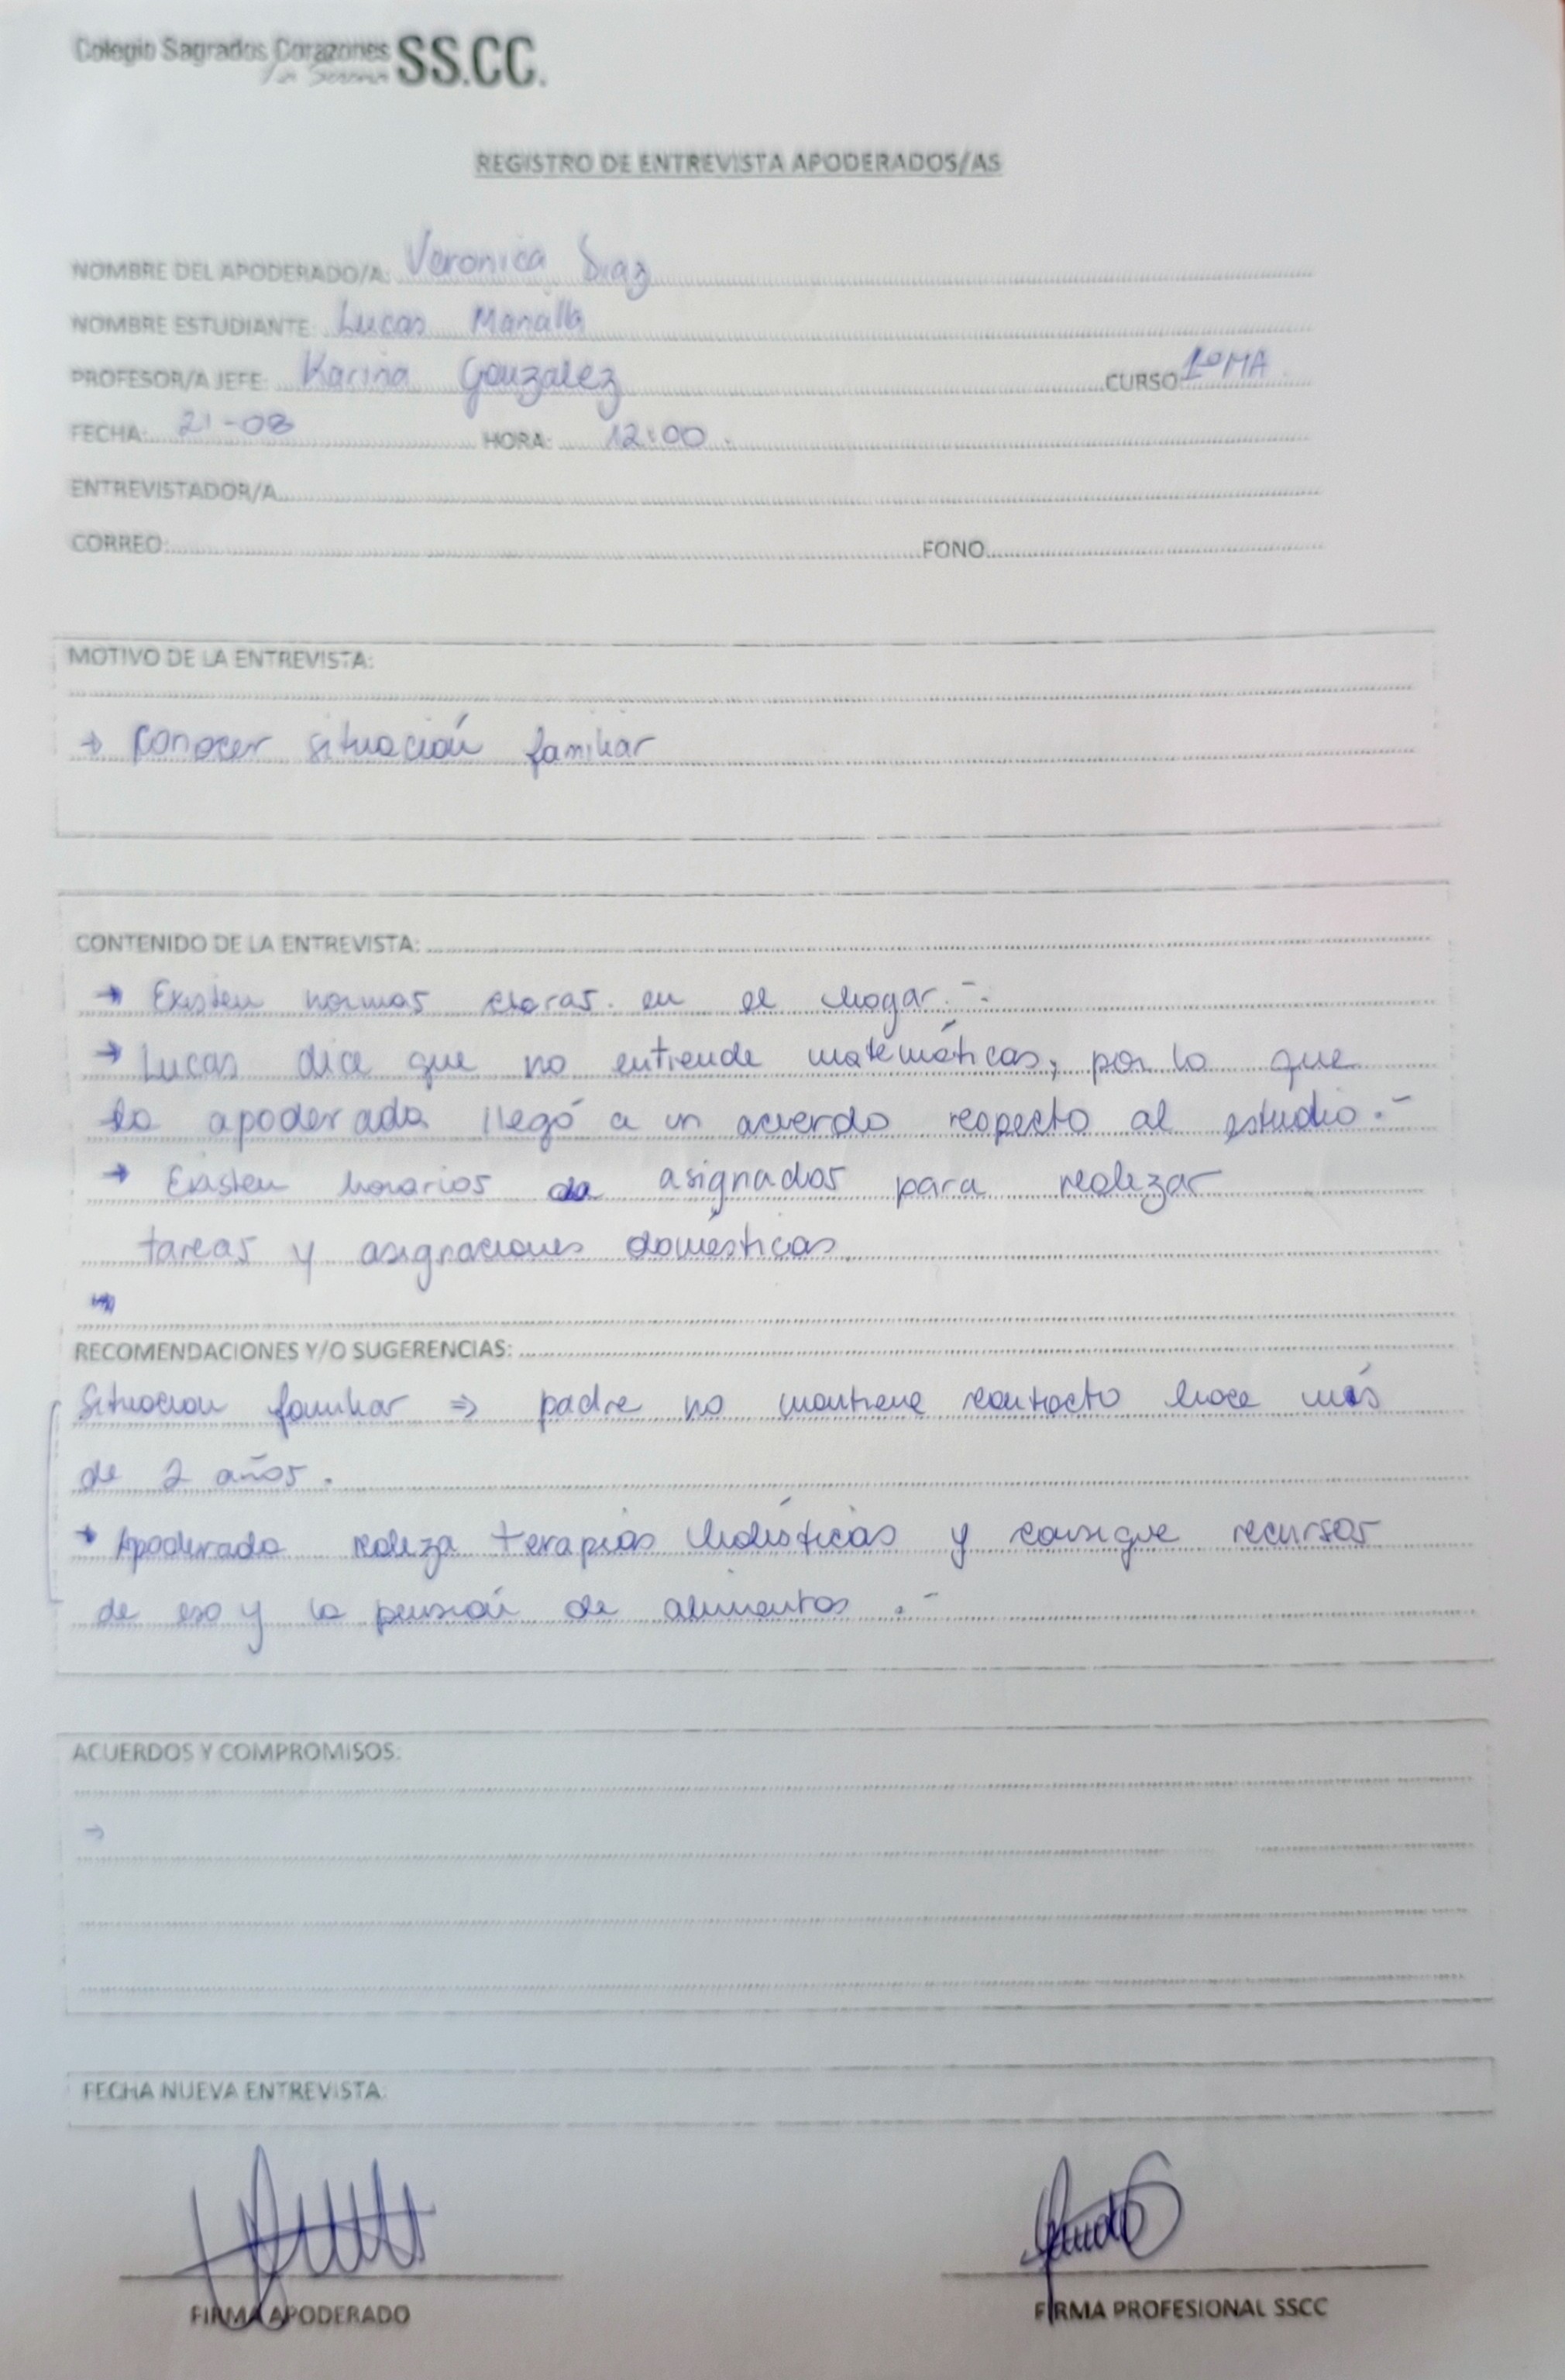 Colegio Sagrados Corazones SS.CC.
La Serena
REGISTRO DE ENTREVISTA APODERADOS/AS
NOMBRE DEL APODERADO/A: Veronica Diaz
NOMBRE ESTUDIANTE: Lucas
PROFESOR/A JEFE: Karina Gonzalez CURSO 1º MA
FECHA: 21-08 HORA: 12:00.
ENTREVISTADOR/A
CORREO: FONO
MOTIVO DE LA ENTREVISTA:
→ Conocer situación familiar
CONTENIDO DE LA ENTREVISTA:
→ Existen normas claras en el hogar.-
→ Lucas dice que no entiende matemáticas, por lo que
la apoderada llegó a un acuerdo respecto al estudio.-
→ Existen horarios asignados para realizar
tareas y asignaciones domésticas.
RECOMENDACIONES Y/O SUGERENCIAS:
Situacion familiar ⇒ padre no mantiene contacto hace más
de 2 años.
→ Apoderada realiza terapias holísticas y consigue recursos
de eso y la pensión de alimentos.-
ACUERDOS Y COMPROMISOS:
→
FECHA NUEVA ENTREVISTA:
FIRMA APODERADO FIRMA PROFESIONAL SSCC